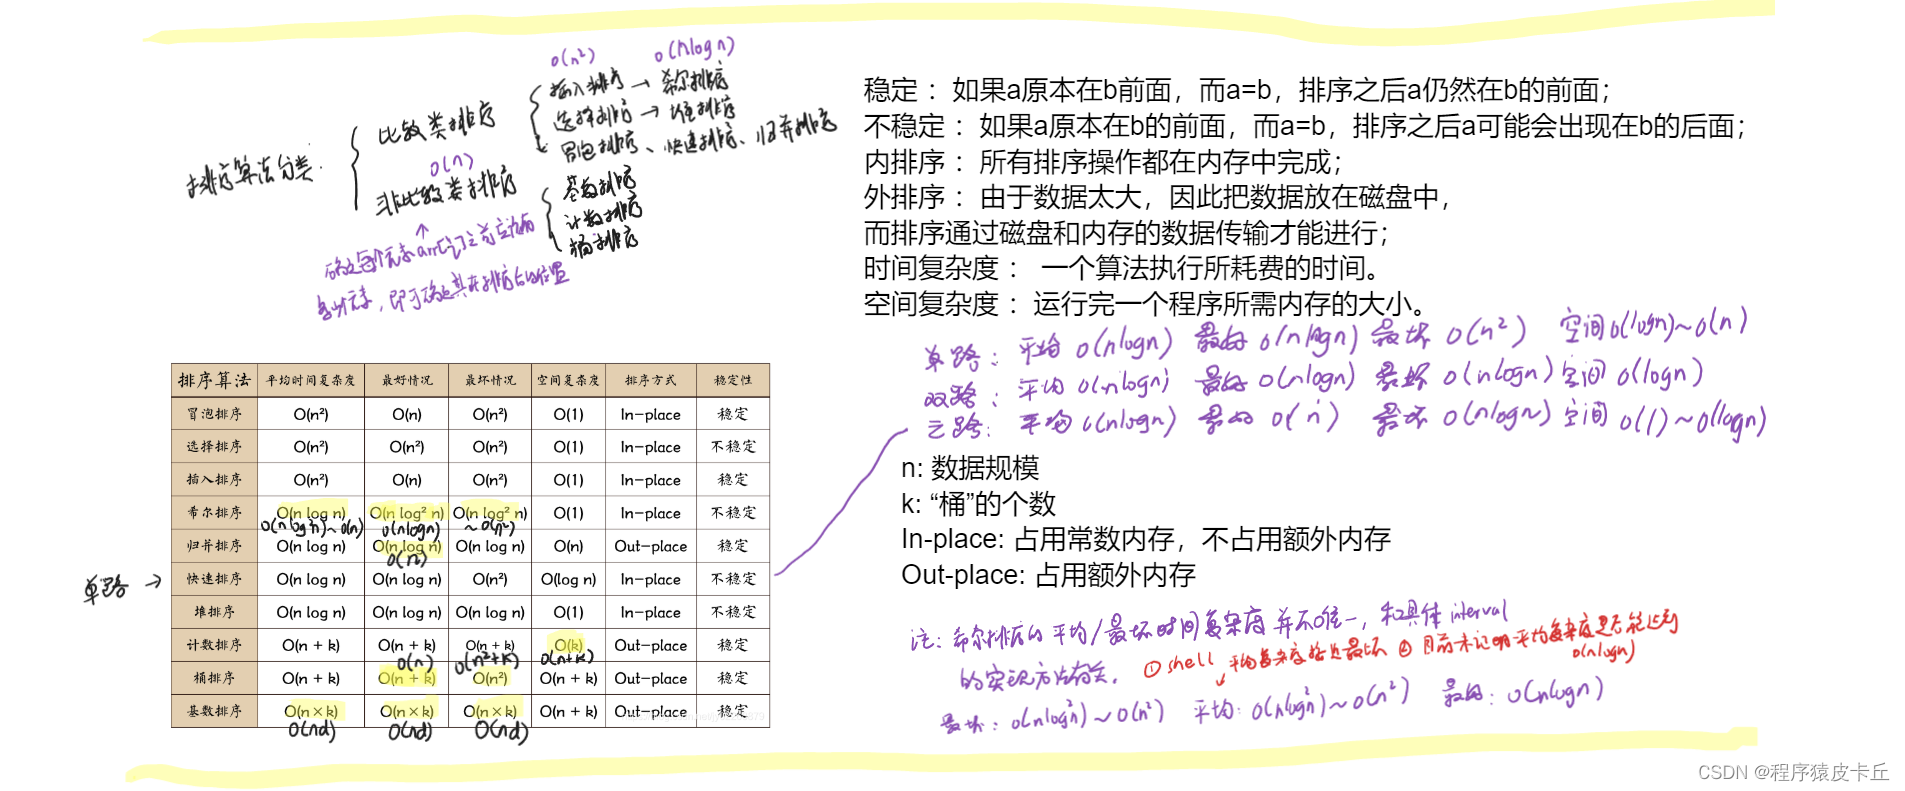 O(n²) O(nlogn)
插入排序 → 希尔排序
比较类排序 选择排序 → 堆排序
冒泡排序、快速排序、归并排序
排序算法分类:
O(n)
非比较类排序 基数排序
计数排序
桶排序
确定每个元素arr[i]之前应该有
多少元素，即可确定其在排序后的位置
稳定： 如果a原本在b前面，而a=b，排序之后a仍然在b的前面；
不稳定： 如果a原本在b的前面，而a=b，排序之后a可能会出现在b的后面；
内排序： 所有排序操作都在内存中完成；
外排序： 由于数据太大，因此把数据放在磁盘中，
而排序通过磁盘和内存的数据传输才能进行；
时间复杂度： 一个算法执行所耗费的时间。
空间复杂度： 运行完一个程序所需内存的大小。
单路: 平均 O(nlogn) 最好 O(nlogn) 最坏 O(n²) 空间 O(logn)~O(n)
双路: 平均 O(nlogn) 最好 O(nlogn) 最坏 O(nlogn) 空间 O(logn)
三路: 平均 O(nlogn) 最好 O(n) 最坏 O(nlogn) 空间 O(1)~O(logn)
n: 数据规模
k: “桶”的个数
In-place: 占用常数内存，不占用额外内存
Out-place: 占用额外内存
排序算法 平均时间复杂度 最好情况 最坏情况 空间复杂度 排序方式 稳定性
冒泡排序 O(n²) O(n) O(n²) O(1) In-place 稳定
选择排序 O(n²) O(n²) O(n²) O(1) In-place 不稳定
插入排序 O(n²) O(n) O(n²) O(1) In-place 稳定
希尔排序 O(n log n) O(n log² n) O(n log² n) O(1) In-place 不稳定
O(n log²n)~O(n) O(nlogn) ~O(n²)
归并排序 O(n log n) O(n log n) O(n log n) O(n) Out-place 稳定
O(n)
单路 → 快速排序 O(n log n) O(n log n) O(n²) O(log n) In-place 不稳定
堆排序 O(n log n) O(n log n) O(n log n) O(1) In-place 不稳定
计数排序 O(n + k) O(n + k) O(n + k) O(k) Out-place 稳定
O(n) O(n²+k) O(n+k)
桶排序 O(n + k) O(n + k) O(n²) O(n + k) Out-place 稳定
基数排序 O(n×k) O(n×k) O(n×k) O(n + k) Out-place 稳定
O(nd) O(nd) O(nd)
注: 希尔排序的平均/最坏时间复杂度并不唯一，和具体 interval
的实现方法有关。 ① shell 平均复杂度接近最坏 ② 目前未证明平均复杂度是否能达到
O(nlogn)
最坏: O(nlog²n)~O(n²) 平均: O(nlog²n)~O(n²) 最好: O(nlogn)
CSDN @程序猿皮卡丘